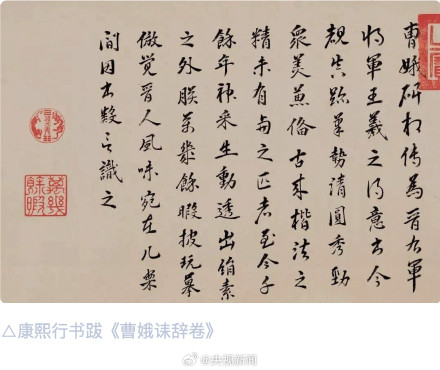 曹娥碑相傳為晉右軍
將軍王羲之得意書今
覩真跡筆勢清圓秀勁
眾美兼備古來楷法之
精未有與之匹者至今千
餘年神采生動透出絹素
之外朕萬幾餘暇披玩摹
倣覺晉人風味宛在几案
間因書數言識之
萬幾餘暇
△康熙行书跋《曹娥诔辞卷》
@央视新闻